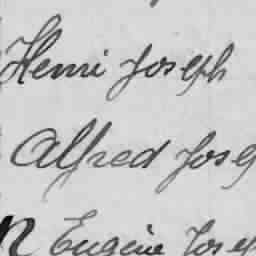 Henri Joseph
Alfred Josep
Eugène Josep